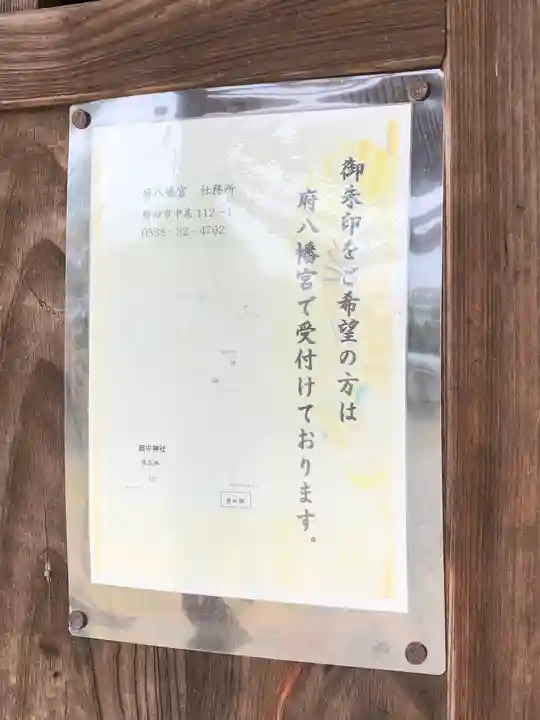 御朱印をご希望の方は
府八幡宮で受付けております。
府八幡宮 社務所
磐田市中泉112-1
0538-32-4762
田中神社
現在地